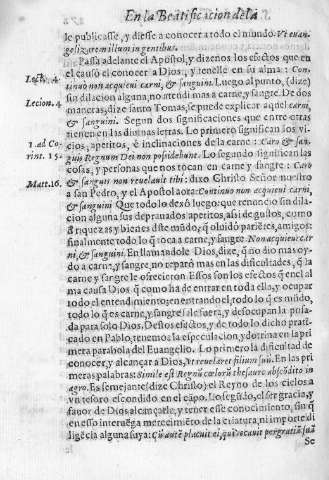 En la Beatificacion de la
le publicasse, y diesse a conocer a todo el mundo. Vt euan-
gelizarem illum in gentibus.
Passa adelante el Apostol, y dizenos los efectos que en
Lect. 4. el causó el conocer a Dios, y tenelle en su alma: Con-
tinuò non acquieui carni, & sanguini. Luego al punto, (dize)
sin dilacion alguna, no atendi mas a carne, y sangre. De dos
Lecion. 4 maneras, dize santo Tomas, se puede explicar aquel carni,
& sanguini. Segun dos significaciones que entre otras
tienen en las diuinas letras. Lo primero significan los vi-
1 ad Co- cios, apetitos, è inclinaciones de la carne: Caro & san-
rint. 15. guis Regnum Dei non posidebunt. Lo segundo significan las
cosas, y personas que nos tocan en carne y sangre: Caro
Matt. 16. & sanguis non reuelauit tibi: dixo Christo Señor nuestro
a san Pedro, y el Apostol aora: Continuo non acquieui carni,
& sanguini Que todo lo dexò luego: que renunciò sin dila-
cion alguna sus deprauados apetitos, assi de gustos, como
d̃ riquezas y bienes dste mũdo; q̃ oluidó pariẽtes, amigos:
finalmente todo lo q̃ toca a carne, y sangre Non acquieui car
ni, & sanguini. En llamandole Dios, dize, q̃ no dio mas oy-
do a carne, y sangre, no reparò mas en las dificultades, q̃ la
carne y sangre le ofrecieron Essos son los efectos q̃ en el al
ma causa Dios, q̃ como ha de entrar en toda ella, y ocupar
todo el entendimiento; en entrando el, todo lo q̃ es mũdo,
todo lo q̃ es carne, y sangre sale fuera, y desocupan la posa-
da para solo Dios. Destos efectos, y de todo lo dicho prati-
cado en Pablo, tenemos la especulacion, y dotrina en la pri
mera parabola del Euangelio. Lo primero la dificultad de
conocer, y alcançar a Dios, Vt reuelaret filium suũ. En las pri
meras palabras: Simile est Regnũ cælorũ thesauro abscõdito in
agro. Es semejante (dize Christo) el Reyno de los cielos a
vn tesoro escondido en el cãpo. Lo segũdo, el ser gracia, y
fauor de Dios alcançarle, y tener esse conocimiento, sin q̃
en esso interuẽga merecimiẽto de la criatura, ni importe di
ligẽcia alguna suya: Cũ autẽ placuit ei, qui vocauit per gratiã suã
Se